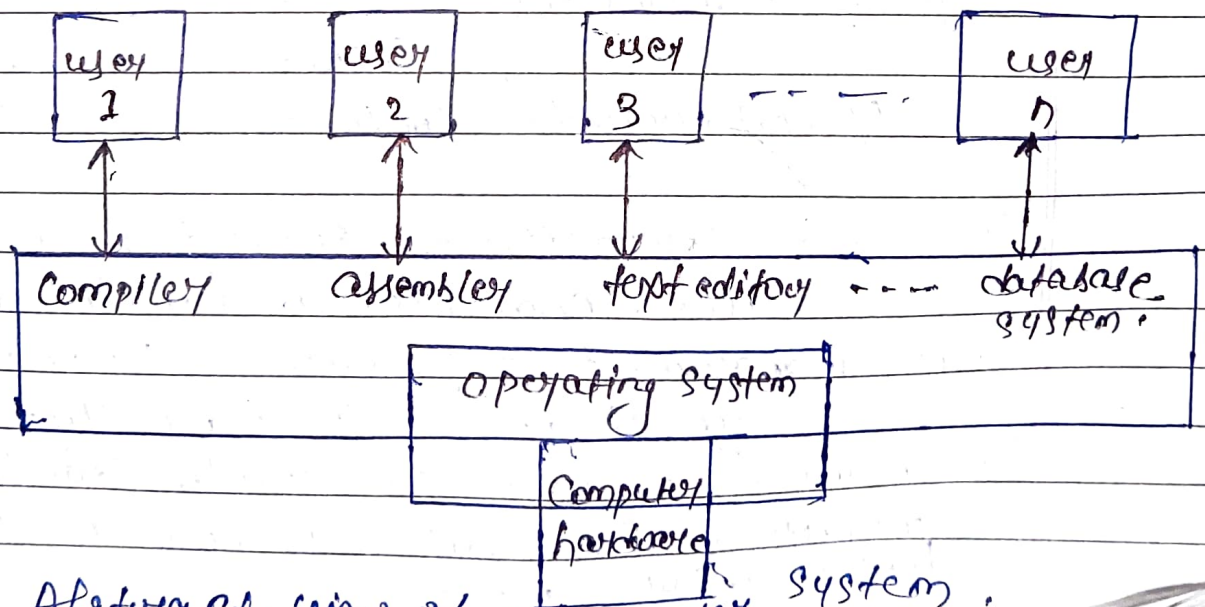 user user user user
1 2 3 - - - . n
compiler assembler text editor - - - - database
system.
operating system
Computer
hardware
system.